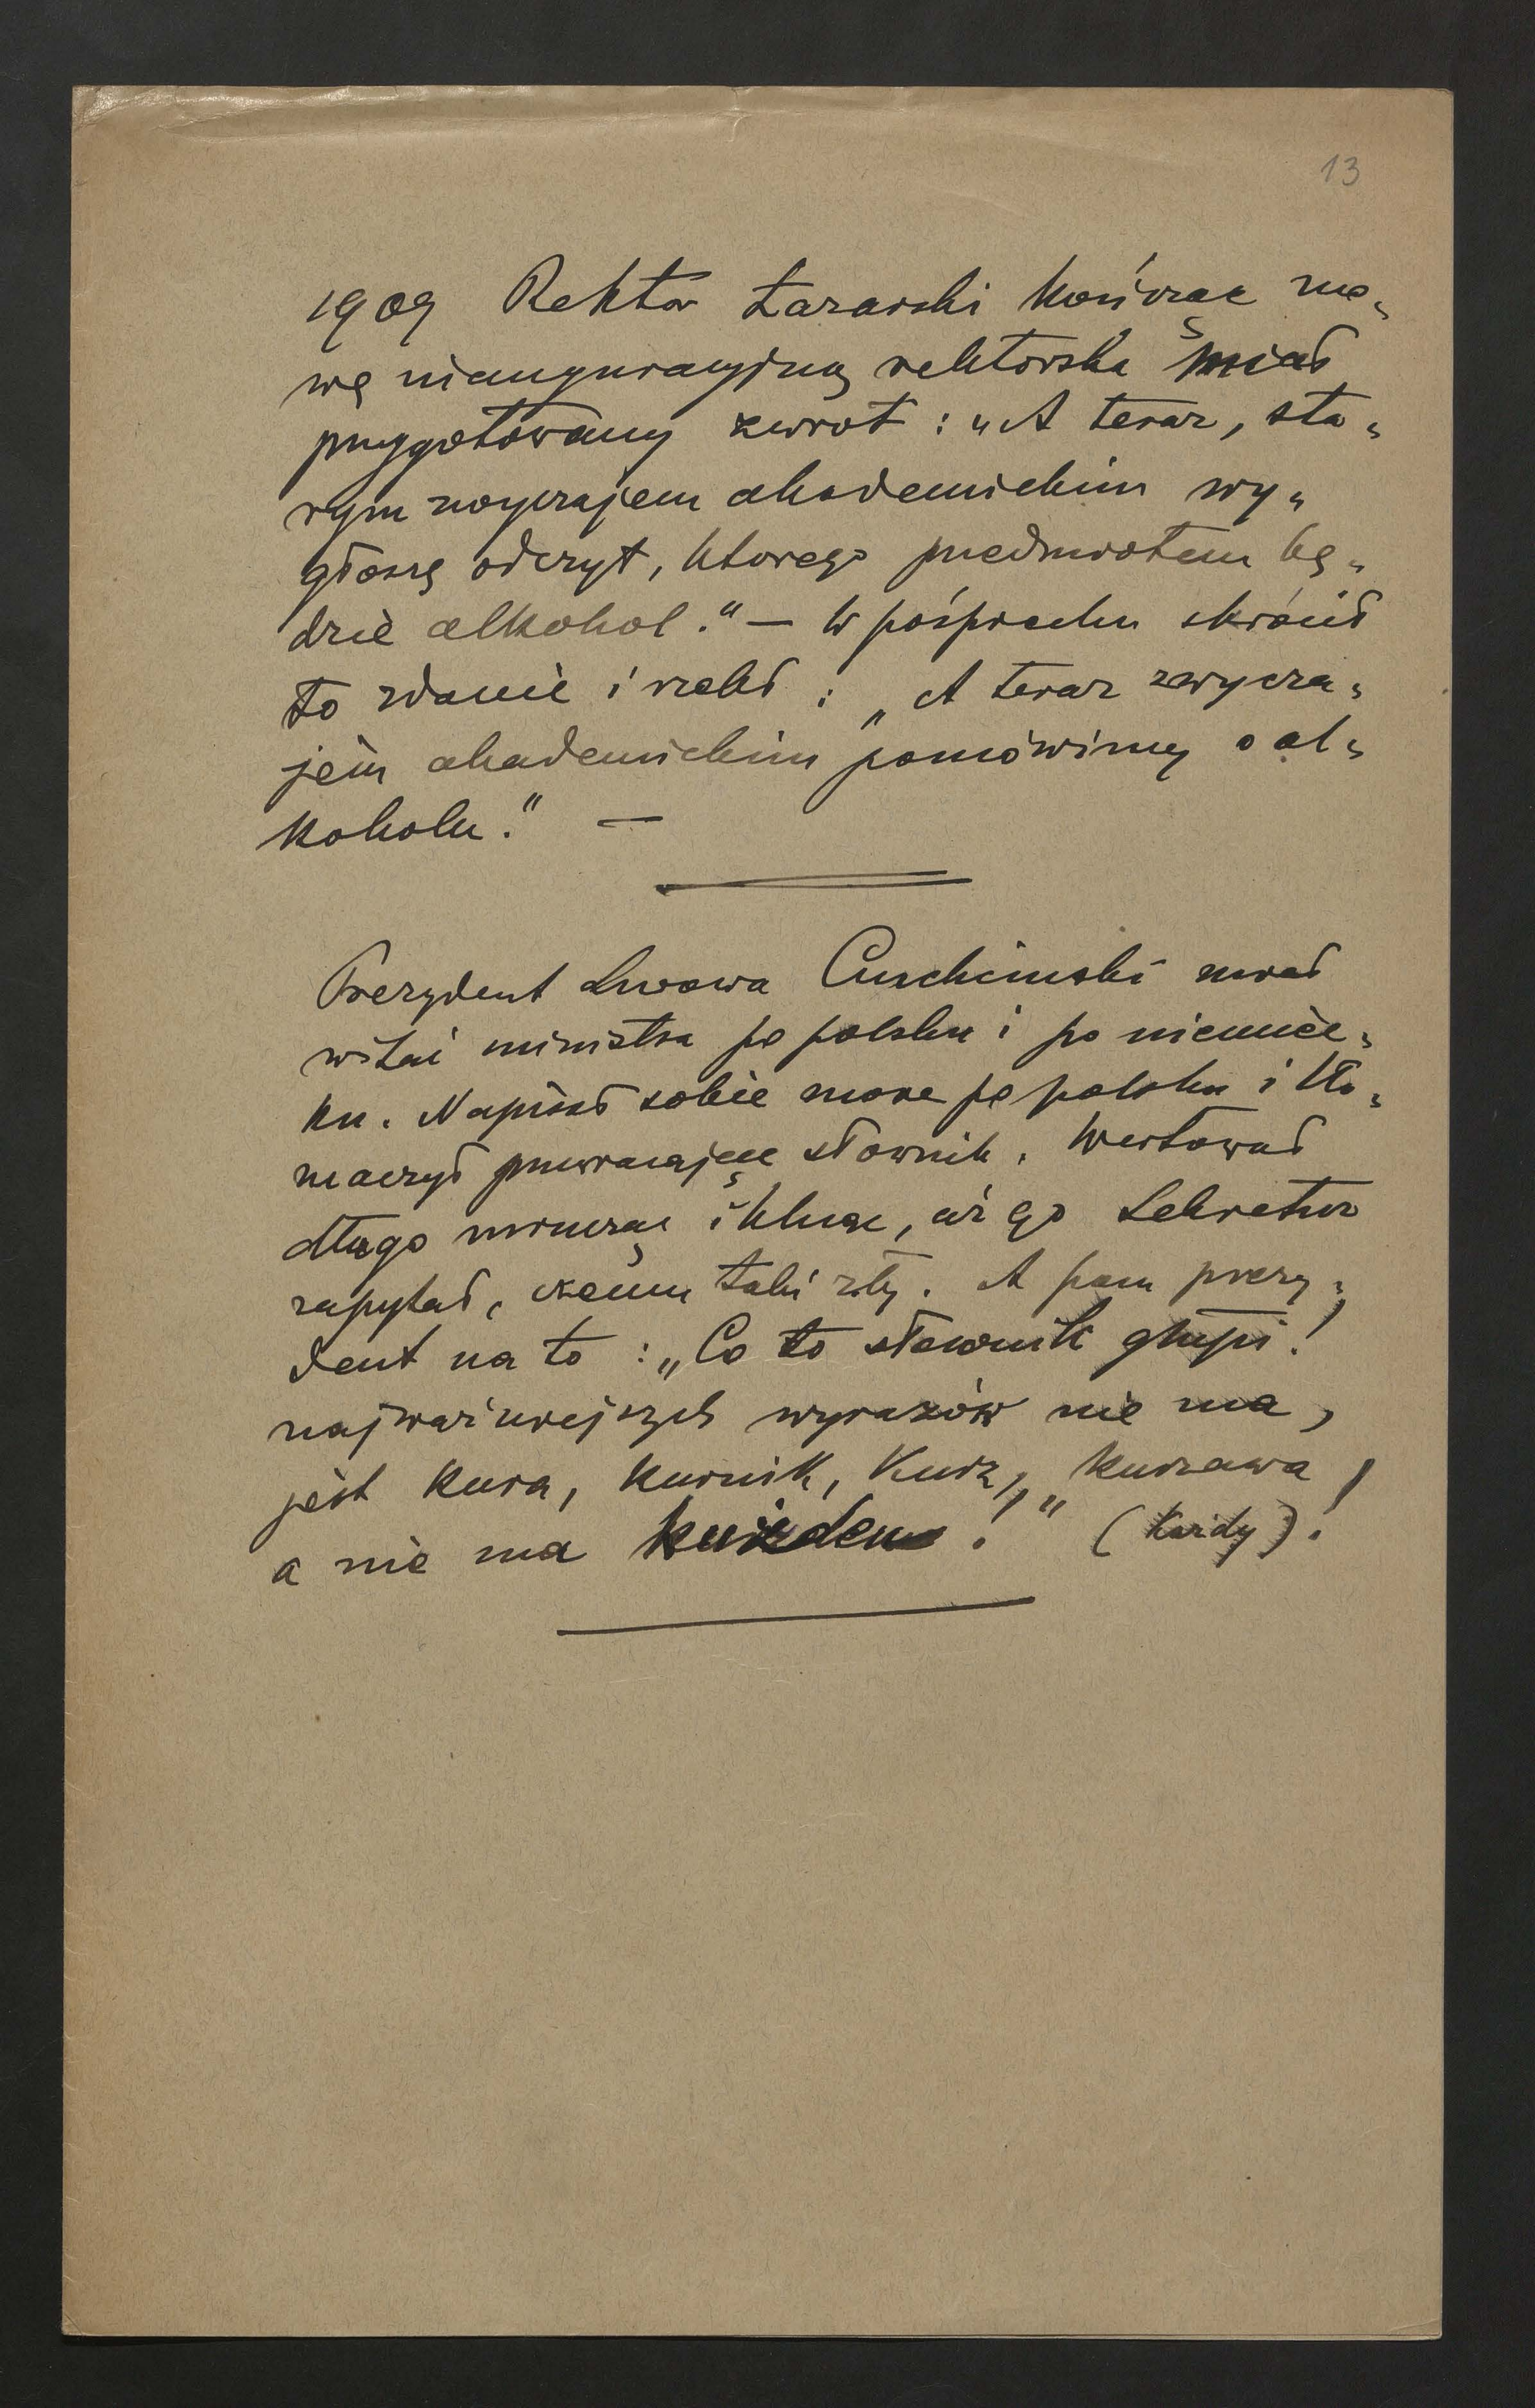 13
1909 Rektor Łazarski kończąc mo„
wę inauguracyjną rektorską miał
przygotowany zwrot : „A teraz, sta„
rym zwyczajem akademickim wy„
głoszę odczyt, którego przedmiotem bę„
dzie alkohol." — W pośpiechu skrócił
to zdanie i rzekł : „A teraz zwycza„
jem akademickim pomówimy o al„
koholu." —
Prezydent Lwowa Ciuchciński miał
witać ministra po polsku i po niemiec„
ku. Napisał sobie mowę po polsku i tło„
maczył przewracając słownik. Wertował
długo mrucząc i klnąc, aż go sekretarz
zapytał, czemu taki zły. A pan prezy„
dent na to : „Co to słownik głupi!
najważniejszych wyrazów nie ma,
jest kura, kurnik, kurz, kurzawa,
a nie ma kużden!" (każdy)!